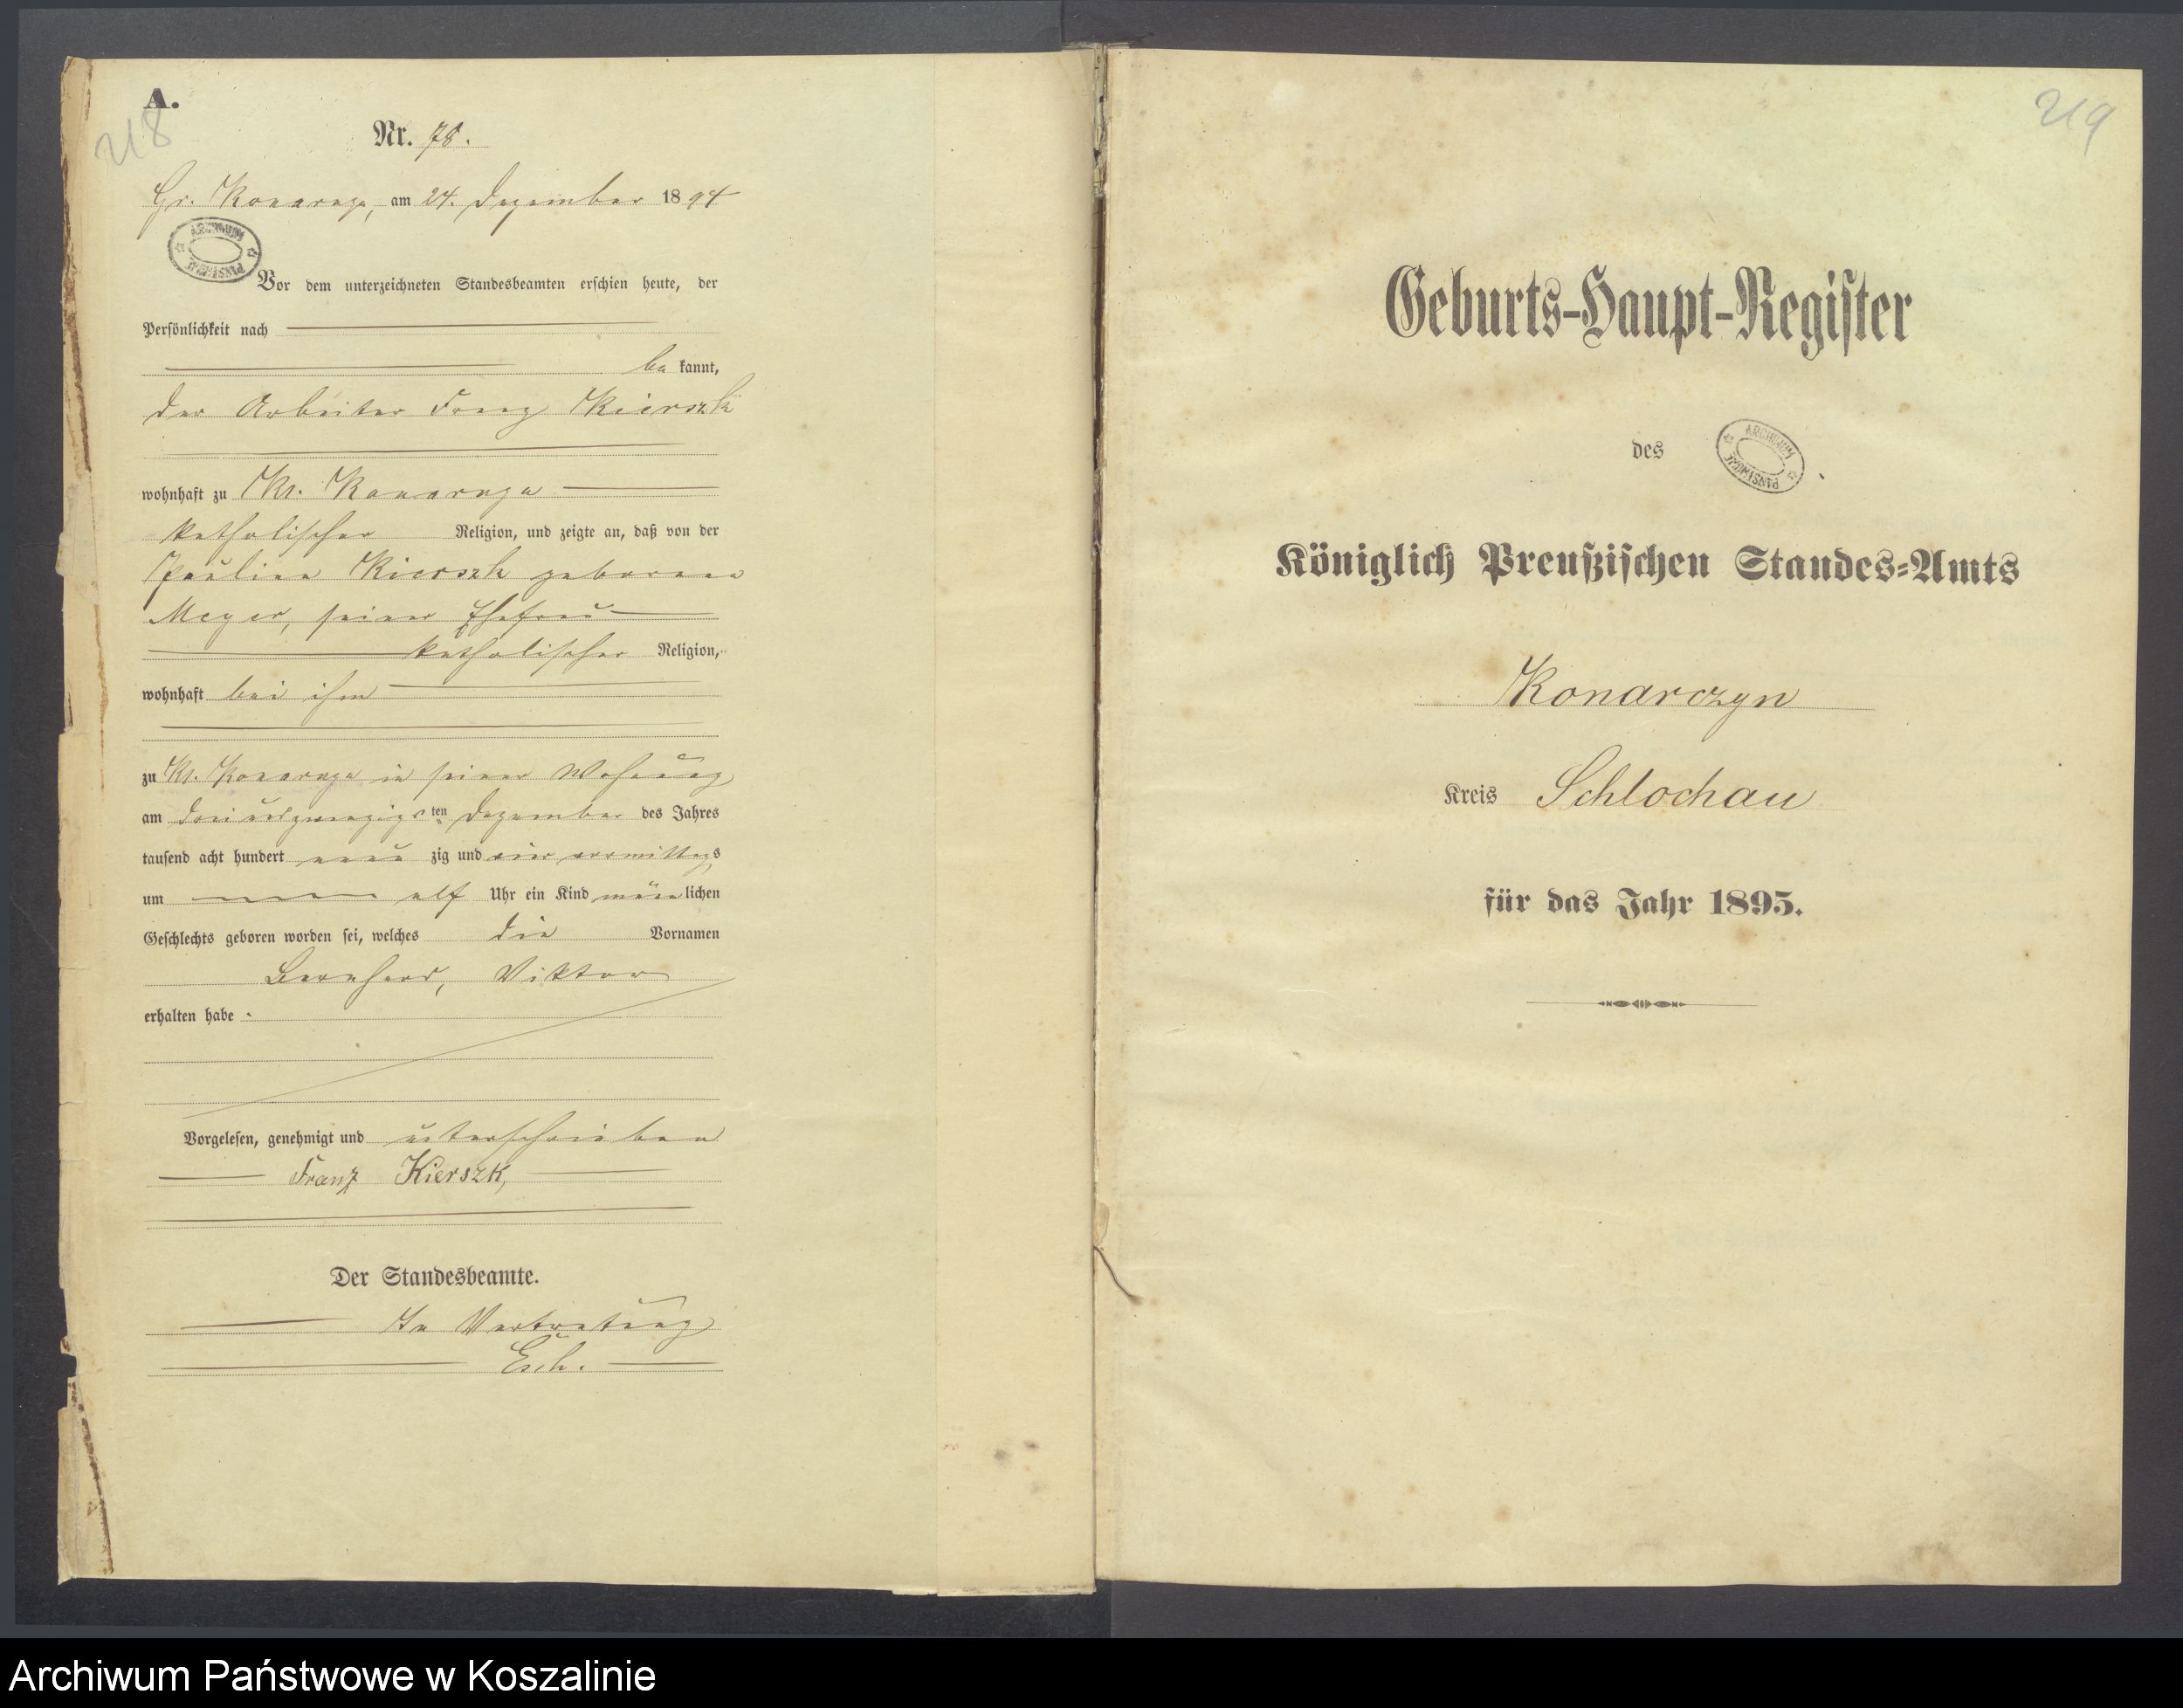 A.
218
Nr. 78.
Gr. Konarczyn, am 24. Dezember 1894
ARCHIWUM PAŃSTWOWE
Vor dem unterzeichneten Standesbeamten erschien heute, der
Persönlichkeit nach
be kannt,
der Arbeiter Franz Kierszk
wohnhaft zu Kl. Konarczyn
katholischer Religion, und zeigte an, daß von der
Pauline Kierszk geborene
Meyer, seiner Ehefrau
katholischer Religion,
wohnhaft bei ihm
zu Kl. Konarczyn in seiner Wohnung
am dreiundzwanzigsten Dezember des Jahres
tausend acht hundert neun zig und vier vormittags
um elf Uhr ein Kind männlichen
Geschlechts geboren worden sei, welches die Vornamen
Bernhard, Viktor
erhalten habe.
Vorgelesen, genehmigt und unterschrieben
Franz Kierszk,
Der Standesbeamte.
In Vertretung
Esch.
219
Geburts-Haupt-Register
des
ARCHIWUM PAŃSTWOWE
Königlich Preußischen Standes-Amts
Konarczyn
Kreis Schlochau
für das Jahr 1895.
Archiwum Państwowe w Koszalinie